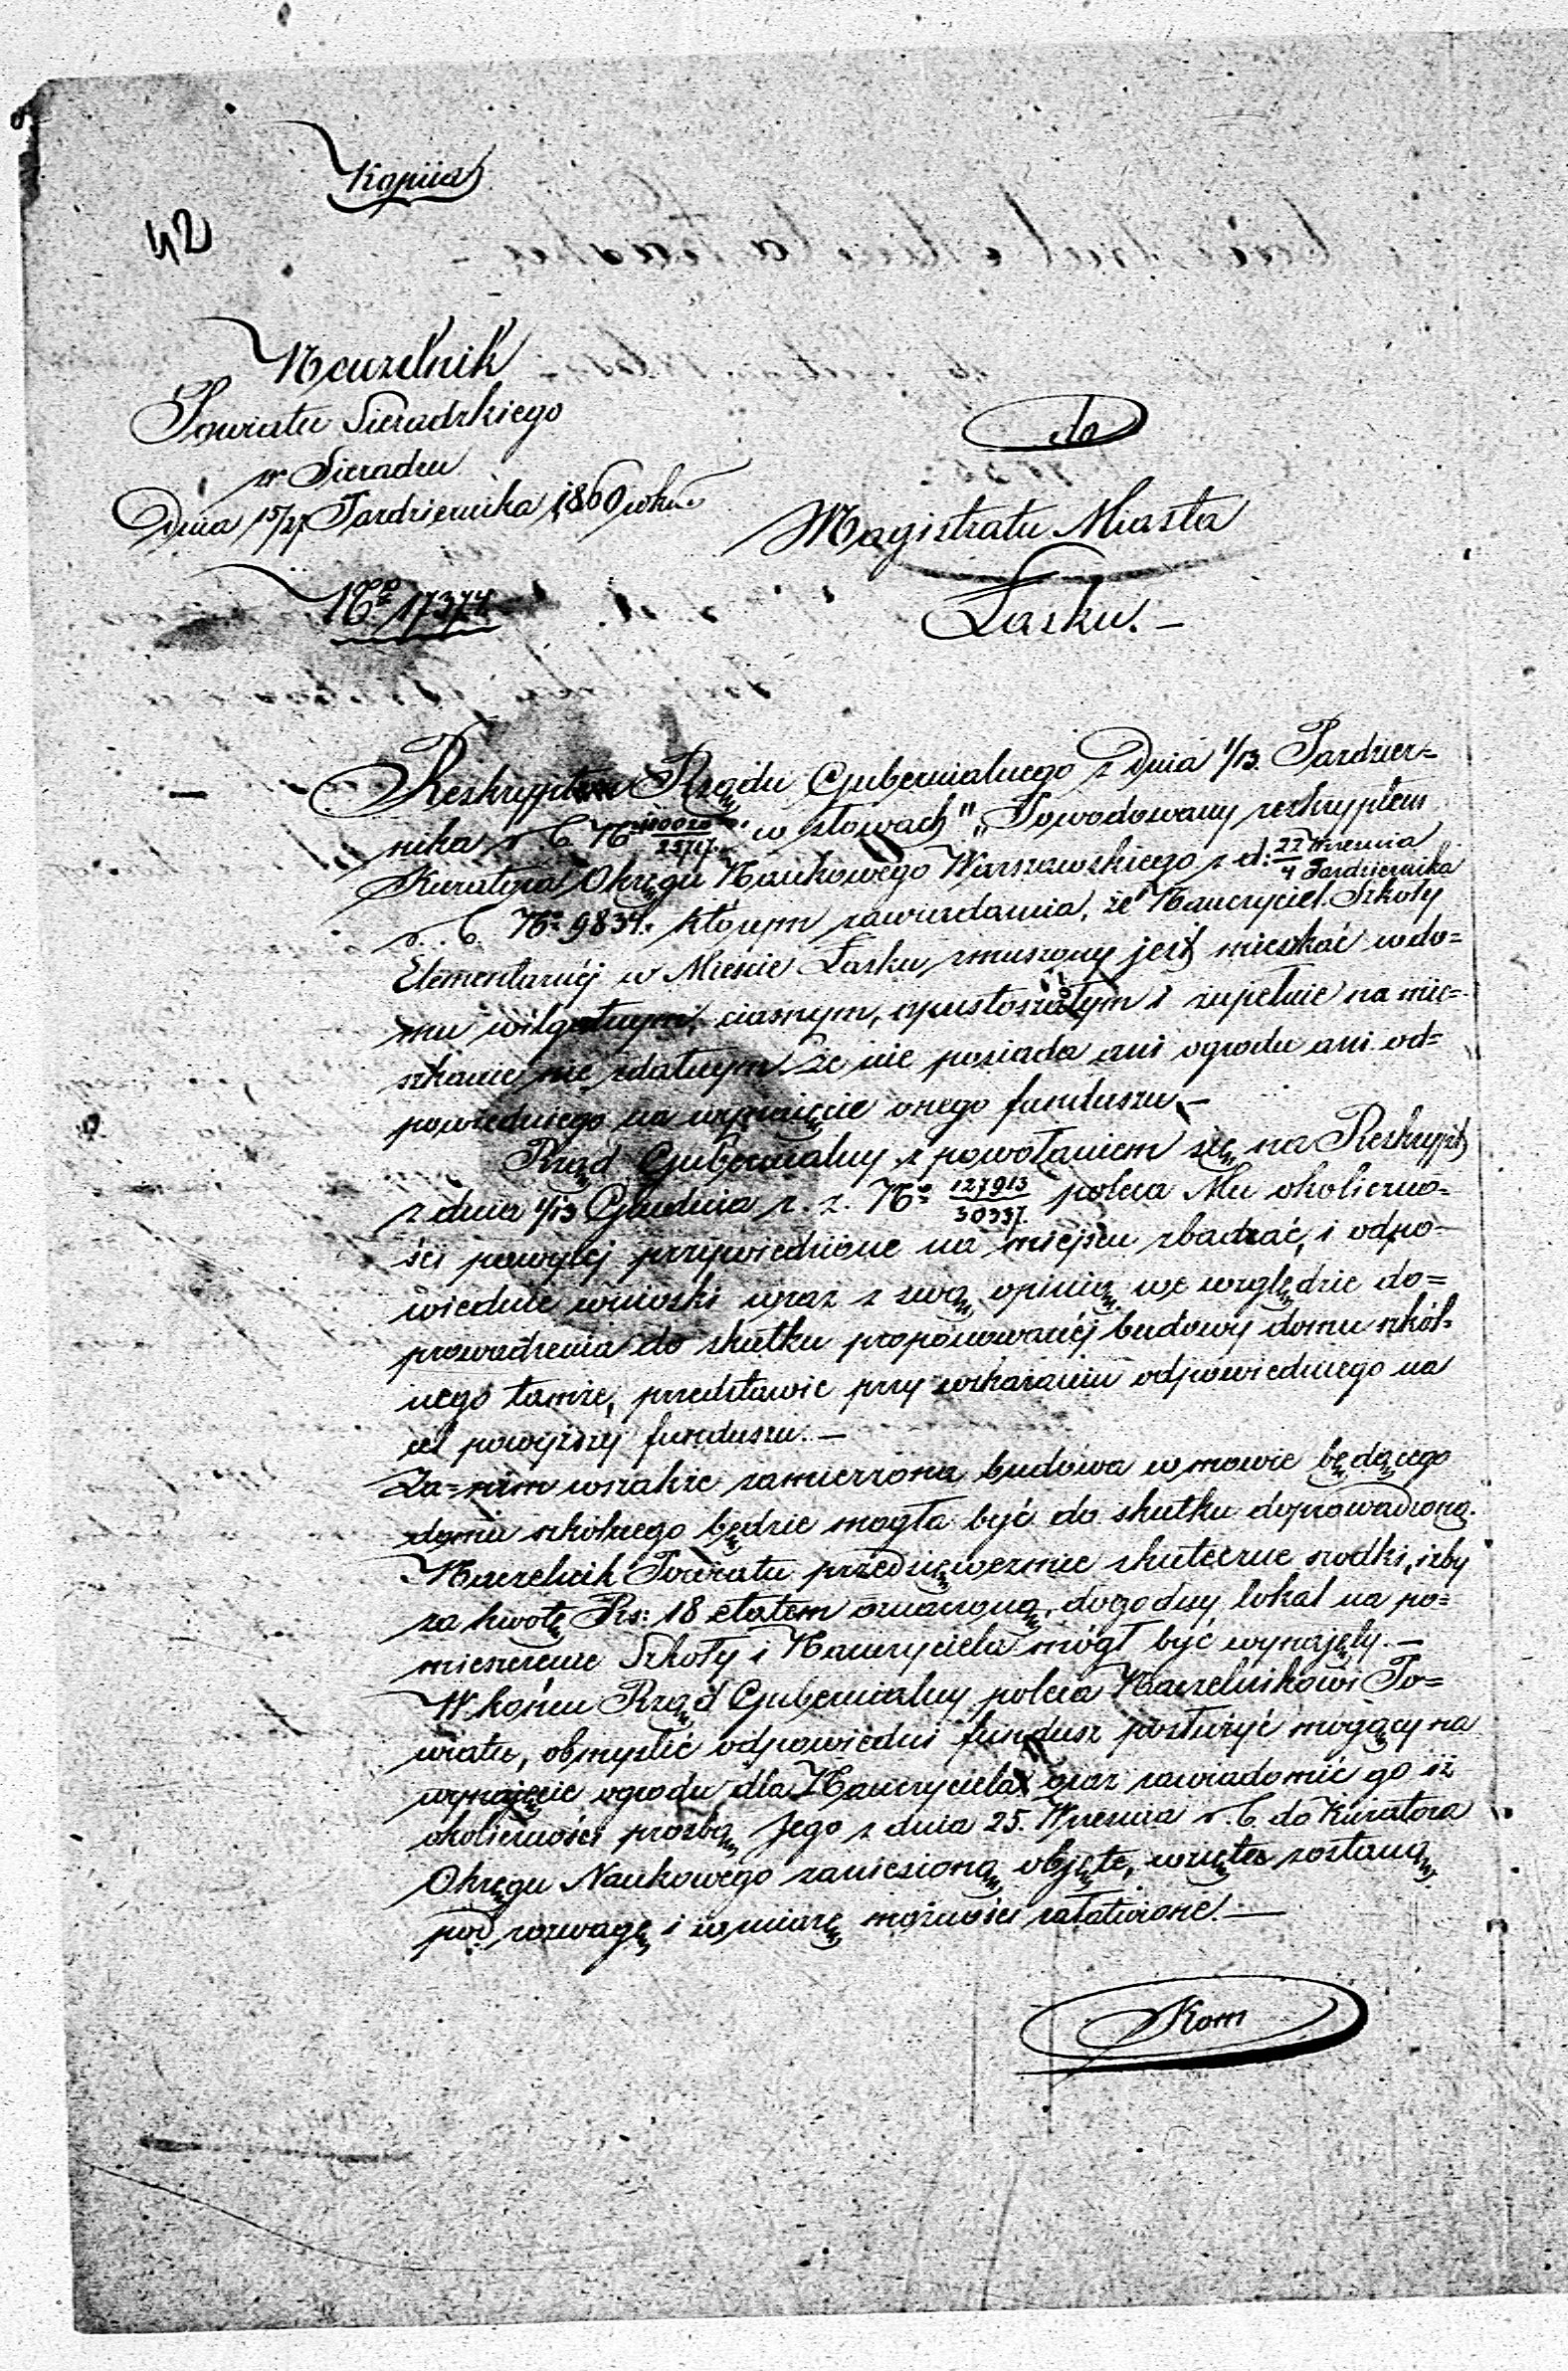 Kopiia
42
Naczelnik
Powiatu Sieradzkiego
w Sieradzu
Dnia 15/27 Pazdziernika 1860 roku
No 17374.
do
Magistratu Miasta
Łasku. —
Reskryptem Rządu Gubernialnego z Dnia 1/13. Pazdzier=
nika r. b. No w słowach „Powodowany reskryptem
Kuratora Okręgu Naukowego Warszawskiego z d: 22 Wrzesnia / 4 Pazdziernika
r. b. No 9834. którym zawiadamia, że Nauczyciel Szkoły
Elementarnéj w Miescie Łasku, zmuszony jest mieszkać w do=
mu wilgotnym, ciasnym, opustoszałym i zupełnie na mie=
szkanie nie zdatnym że nie posiada ani ogrodu ani od=
powiedniego na wynajęcie onego funduszu. —
Rząd Gubernialny z powołaniem się na Reskrypt
z dnia 1/13 Grudnia r. z. No 127913/30337. poleca Mu okoliczno=
ści powyżéj przywiedzione na miejscu zbadzać, i odpo=
wiednie wnioski wraz z swą opinią we względzie do=
prowadzenia do skutku proponowanéj budowy domu szkól=
nego tamże, przedstawic przy wskazaniu odpowiedniego na
cel powyższy funduszu. —
Za=nim wszakże zamierzona budowa w mowie będącego
domu szkólnego będzie mogła być do skutku doprowadzoną.
Naczelnik Powiatu przedsięwezmie skuteczne srodki, iżby
za kwotę Rs: 18 etatem oznaczoną, dogodny lokal na po=
mieszczenie Szkoły i Nauczyciela mógł być wynajęty. —
W końcu Rząd Gubernialny poleca Naczelnikowi Po=
wiatu, obmyslić odpowiedni fundusz posłużyć mogący na
wynajęcie ogrodu dla Nauczyciela oraz zawiadomić go iż
okoliczności prozbą Jego z dnia 25. Wrzesnia r. b. do Kuratora
Okręgu Naukowego zaniesioną objęte, wzięte zostaną
pod rozwagę i w miarę możności załatwione. —
Kom